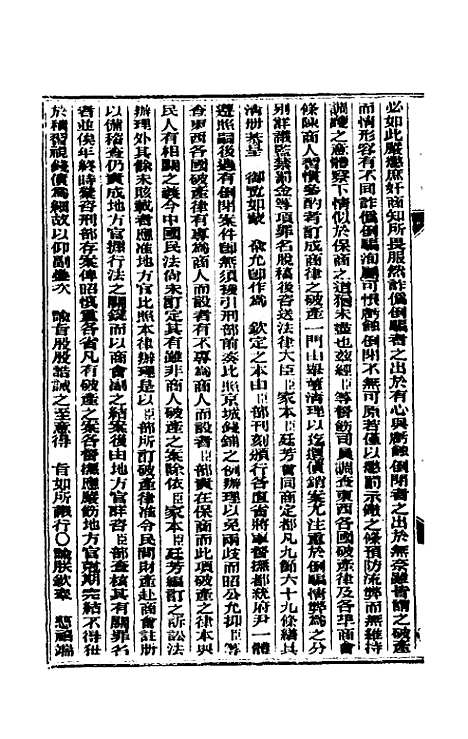 必如此嚴懲庶奸商知所畏服然詐僞倒騙者之出於有心與虧蝕倒閉者之出於無奈雖皆謂之破產
而情形容有不同詐僞倒騙洵屬可恨虧蝕倒閉不無可原若僅以懲罰示儆之條預防流弊而無維持
調護之意體察下情似於保商之道猶未盡也茲經臣等督飭司員調查東西各國破產律及各埠商會
條陳商人習慣參酌考訂成商律之破產一門由舉董清理以迄還償銷案尤注重於倒騙情弊爲之分
別詳議監禁罰金等項罪名脫稿後咨送法律大臣臣家本臣廷芳會同商定都凡九節六十九條繕具
清册恭呈 御覽如蒙 俞允即作爲 欽定之本由臣部刊刻頒行各直省將軍督撫都統府尹一體
遵照嗣後遇有倒閉案件即無須援引刑部前奏比照京城錢鋪之例辦理以免兩歧而昭公允抑臣等
查東西各國破產律有專爲商人而設者有不專爲商人而設者臣部責在保商而此項破產之律本與
民人有相關之義今中國民法尚未訂定其有雖非商人破產之案除依臣家本臣廷芳編訂之訴訟法
辦理外其餘未賅載者應准地方官比照本律辦理是以臣部所訂破產律准令民間財產赴商會註册
以備稽查仍責成地方官操行法之關鍵而以商會副之結案後由地方官詳咨臣部查核其有關罪名
者並俟年終時彙咨刑部存案俾昭慎重各省凡有破產之案各督撫應嚴飭地方官剋期完結不得狃
於積習視錢債爲細故以仰副疊次 諭旨殷殷誥誡之至意得 旨如所議行〇諭朕欽奉 慈禧端